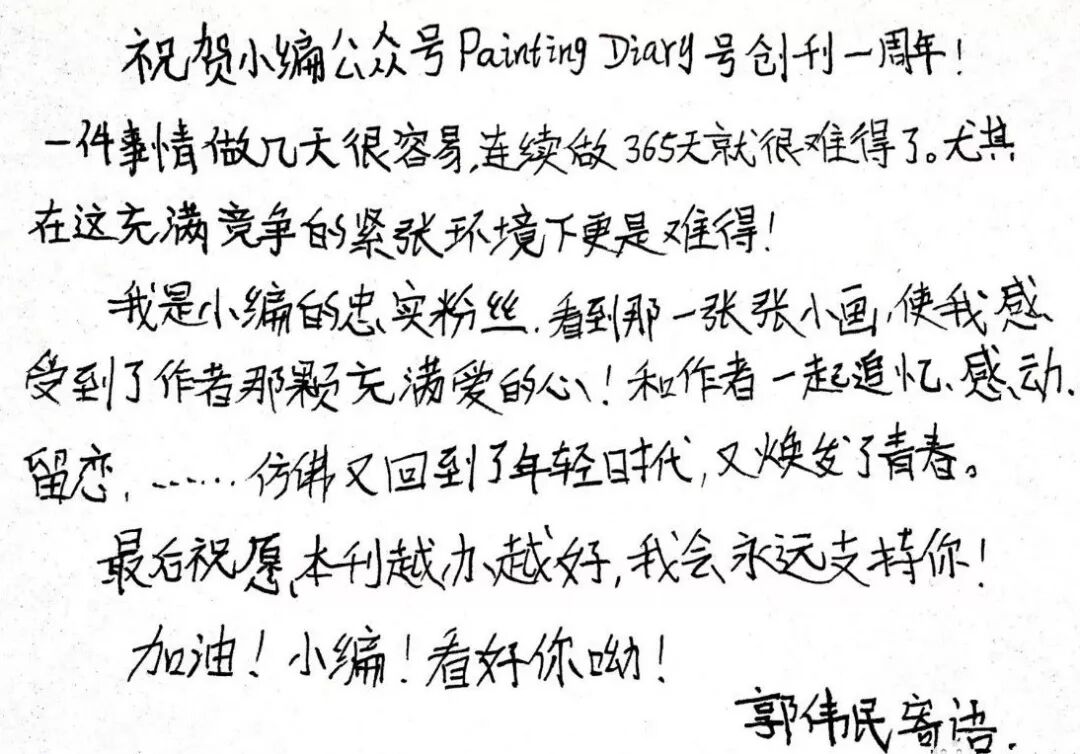 祝贺小编公众号Painting Diary号创刊一周年！
一件事情做几天很容易,连续做365天就很难得了。尤其
在这充满竞争的紧张环境下更是难得！
我是小编的忠实粉丝.看到那一张张小画,使我感
受到了作者那颗充满爱的心！和作者一起追忆、感动.
留恋,……仿佛又回到了年轻时代,又焕发了青春。
最后祝愿,本刊越办越好,我会永远支持你！
加油！小编！看好你呦！
郭伟民寄语.